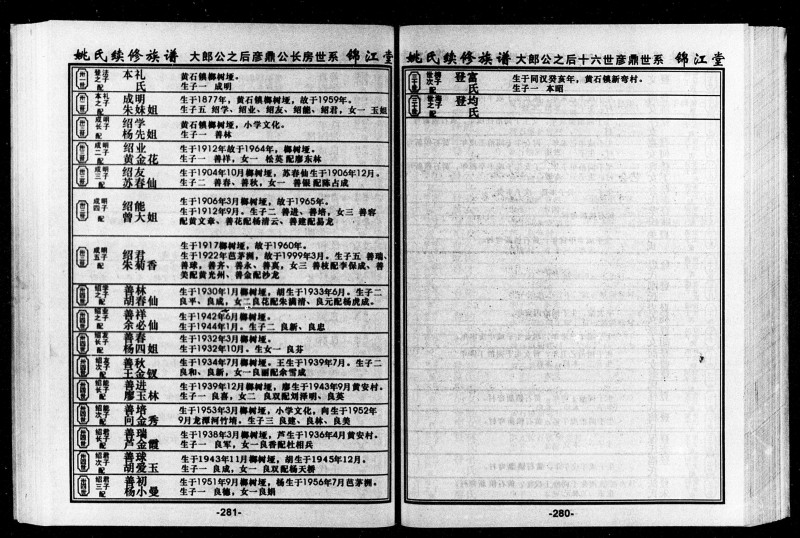 姚氏续修族谱 大郎公之后彦鼎公长房世系 锦江堂
本礼
氏
黄石镇榔树垭。
生子一 成明
本礼之子 成明
配 朱妹姐
生于1877年，黄石镇榔树垭，故于1959年。
生子五 绍学、绍业、绍友、绍能、绍君，女一 玉姐
成明长子 绍学
配 杨先姐
黄石镇榔树垭，小学文化。
生子一 善林
成明二子 绍业
配 黄金花
生于1912年故于1964年，榔树垭。
生子一 善祥，女一 松英配廖东林
成明三子 绍友
配 苏春仙
生于1904年10月榔树垭，苏春仙生于1906年12月。
生子二 善春、善秋，女一 善银配陈占成
成明四子 绍能
配 曾大姐
生于1906年3月榔树垭，故于1965年。
生于1912年9月。生子二 善进、善培，女三 善容
配黄文章、善花配杨清云、善建配易龙
成明五子 绍君
配 朱菊香
生于1917榔树垭，故于1960年。
生于1922年芭茅洲，故于1999年3月。生子五 善瑞、
善球，善齐、善永、善真，女三 善枝配李保成、善
美配黄光州、善金配沙龙
绍学之子 善林
配 胡春仙
生于1930年1月榔树垭，胡生于1933年6月。生子二
良平、良成，女二良花配朱满清、良元配杨虎成。
绍业之子 善祥
配 余必仙
生于1942年6月榔树垭。
生于1944年1月。生子二 良新、良忠
绍友长子 善春
配 杨四姐
生于1932年3月榔树垭。
生于1932年10月。生女一 良芬
绍友次子 善秋
配 王金钗
生于1934年7月榔树垭。王生于1939年7月。生子二
良和、良新，女一良丽配余雪成
绍能长子 善进
配 廖玉林
生于1939年12月榔树垭，廖生于1943年9月黄安村。
生子一 良喜，女二 良双配刘泽明、良英
绍能次子 善培
配 向金秀
生于1953年3月榔树垭，小学文化，向生于1952年
9月龙潭河竹墙。生子三 良建、良林、良美
绍君长子 善瑞
配 芦金霞
生于1938年3月榔树垭，芦生于1936年4月黄安村。
生子一 良军，女一良香配杜相兵
绍君次子 善球
配 胡爱玉
生于1943年11月榔树垭，胡生于1945年12月。
生子一 良成，女一良双配杨天桥
绍君三子 善初
配 杨小曼
生于1951年9月榔树垭，杨生于1956年7月芭茅洲。
生子一 良德，女一良娟
-281-
姚氏续修族谱 大郎公之后十六世彦鼎世系 锦江堂
登富
配 氏
生于同汉癸亥年，黄石镇新弯村。
生子一 本昭
登均
配 氏
-280-